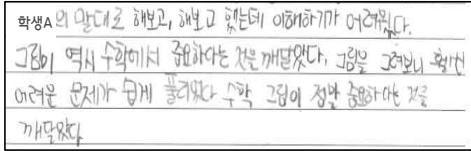 학생A의 말대로 해보고, 해보고 했는데 이해하기가 어려웠다.
그림이 역시 수학에서 중요하다는 것을 깨달았다. 그림을 그려보니 훨씬
어려운 문제가 쉽게 풀리었다 수학 그림이 정말 중요하다는 것을
깨달았다